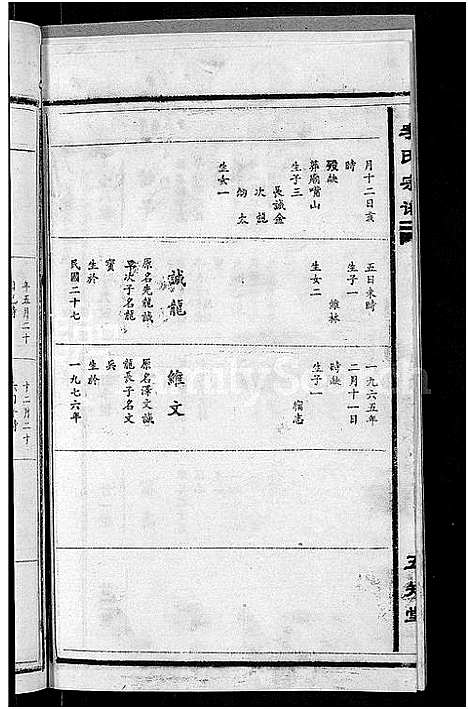 李氏宗譜
五知堂
月十二日亥
時
歿缺
葬廟嘴山
生子三
長誠金
次
幼太
生女一
五日未時
生子一
維林
生女二
誠龍
原名先龍誠
次子名龍
寳
生於
民國二十七
一九六五年
二月十一日
時缺
生子一
維文
原名澤文誠
龍長子名文
兵
生於
一九七六年
年五月二十
十二月二十